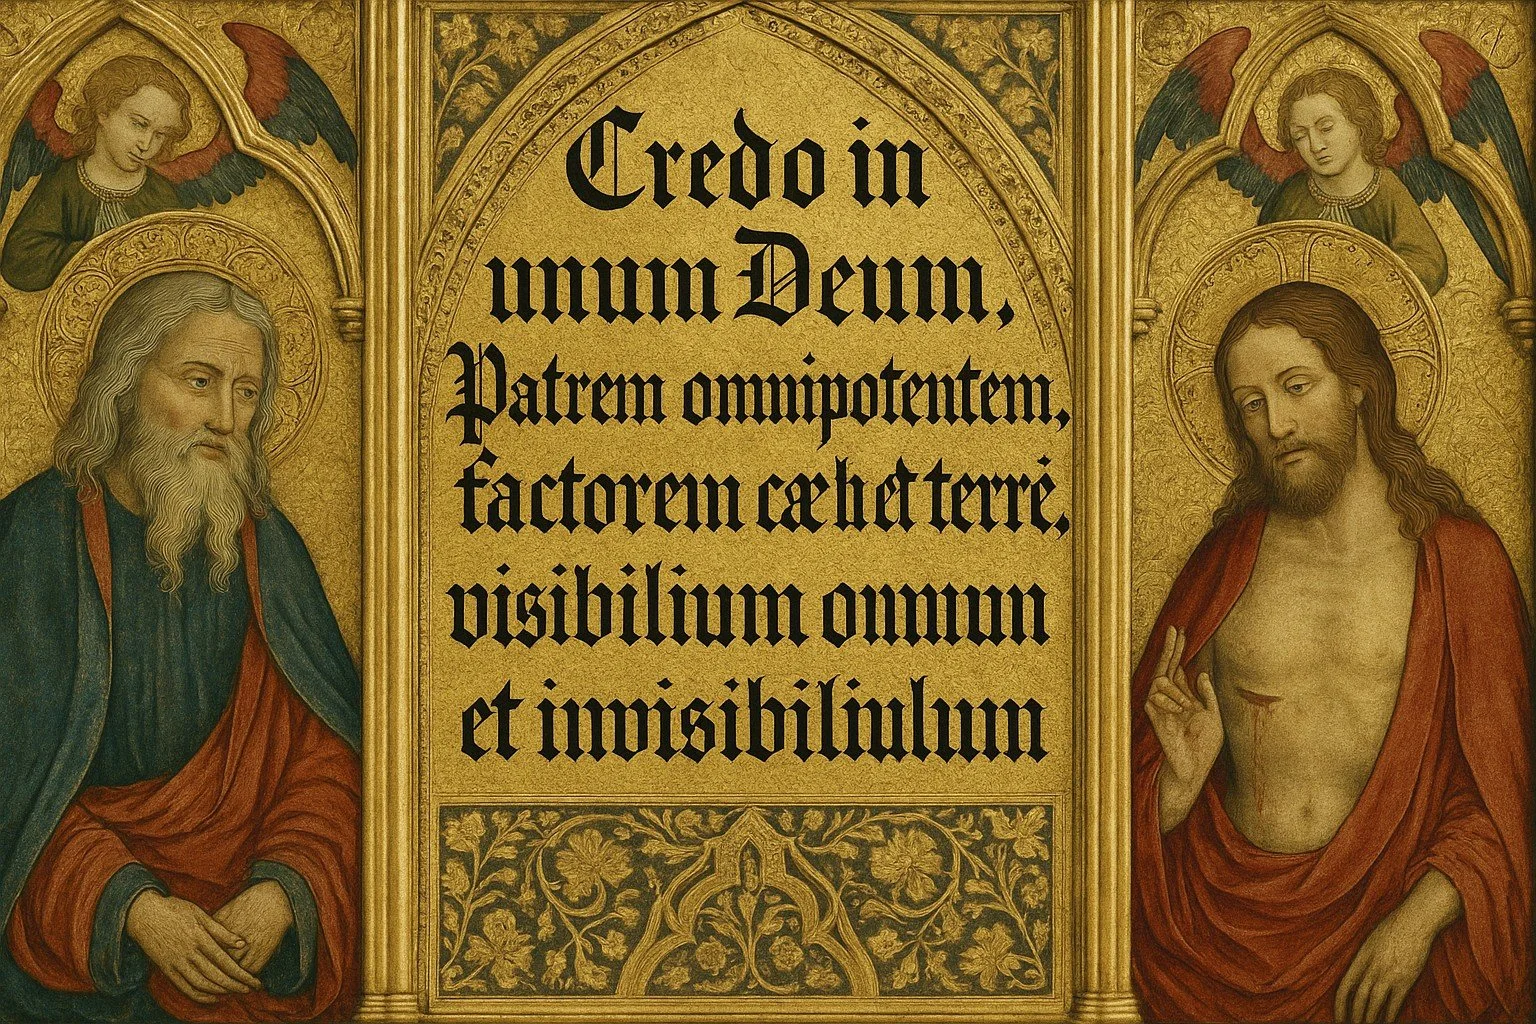 Credo in
unum Deum,
Patrem omnipotentem,
factorem cæli et terré,
visibilium onmun
et invisibiliulum